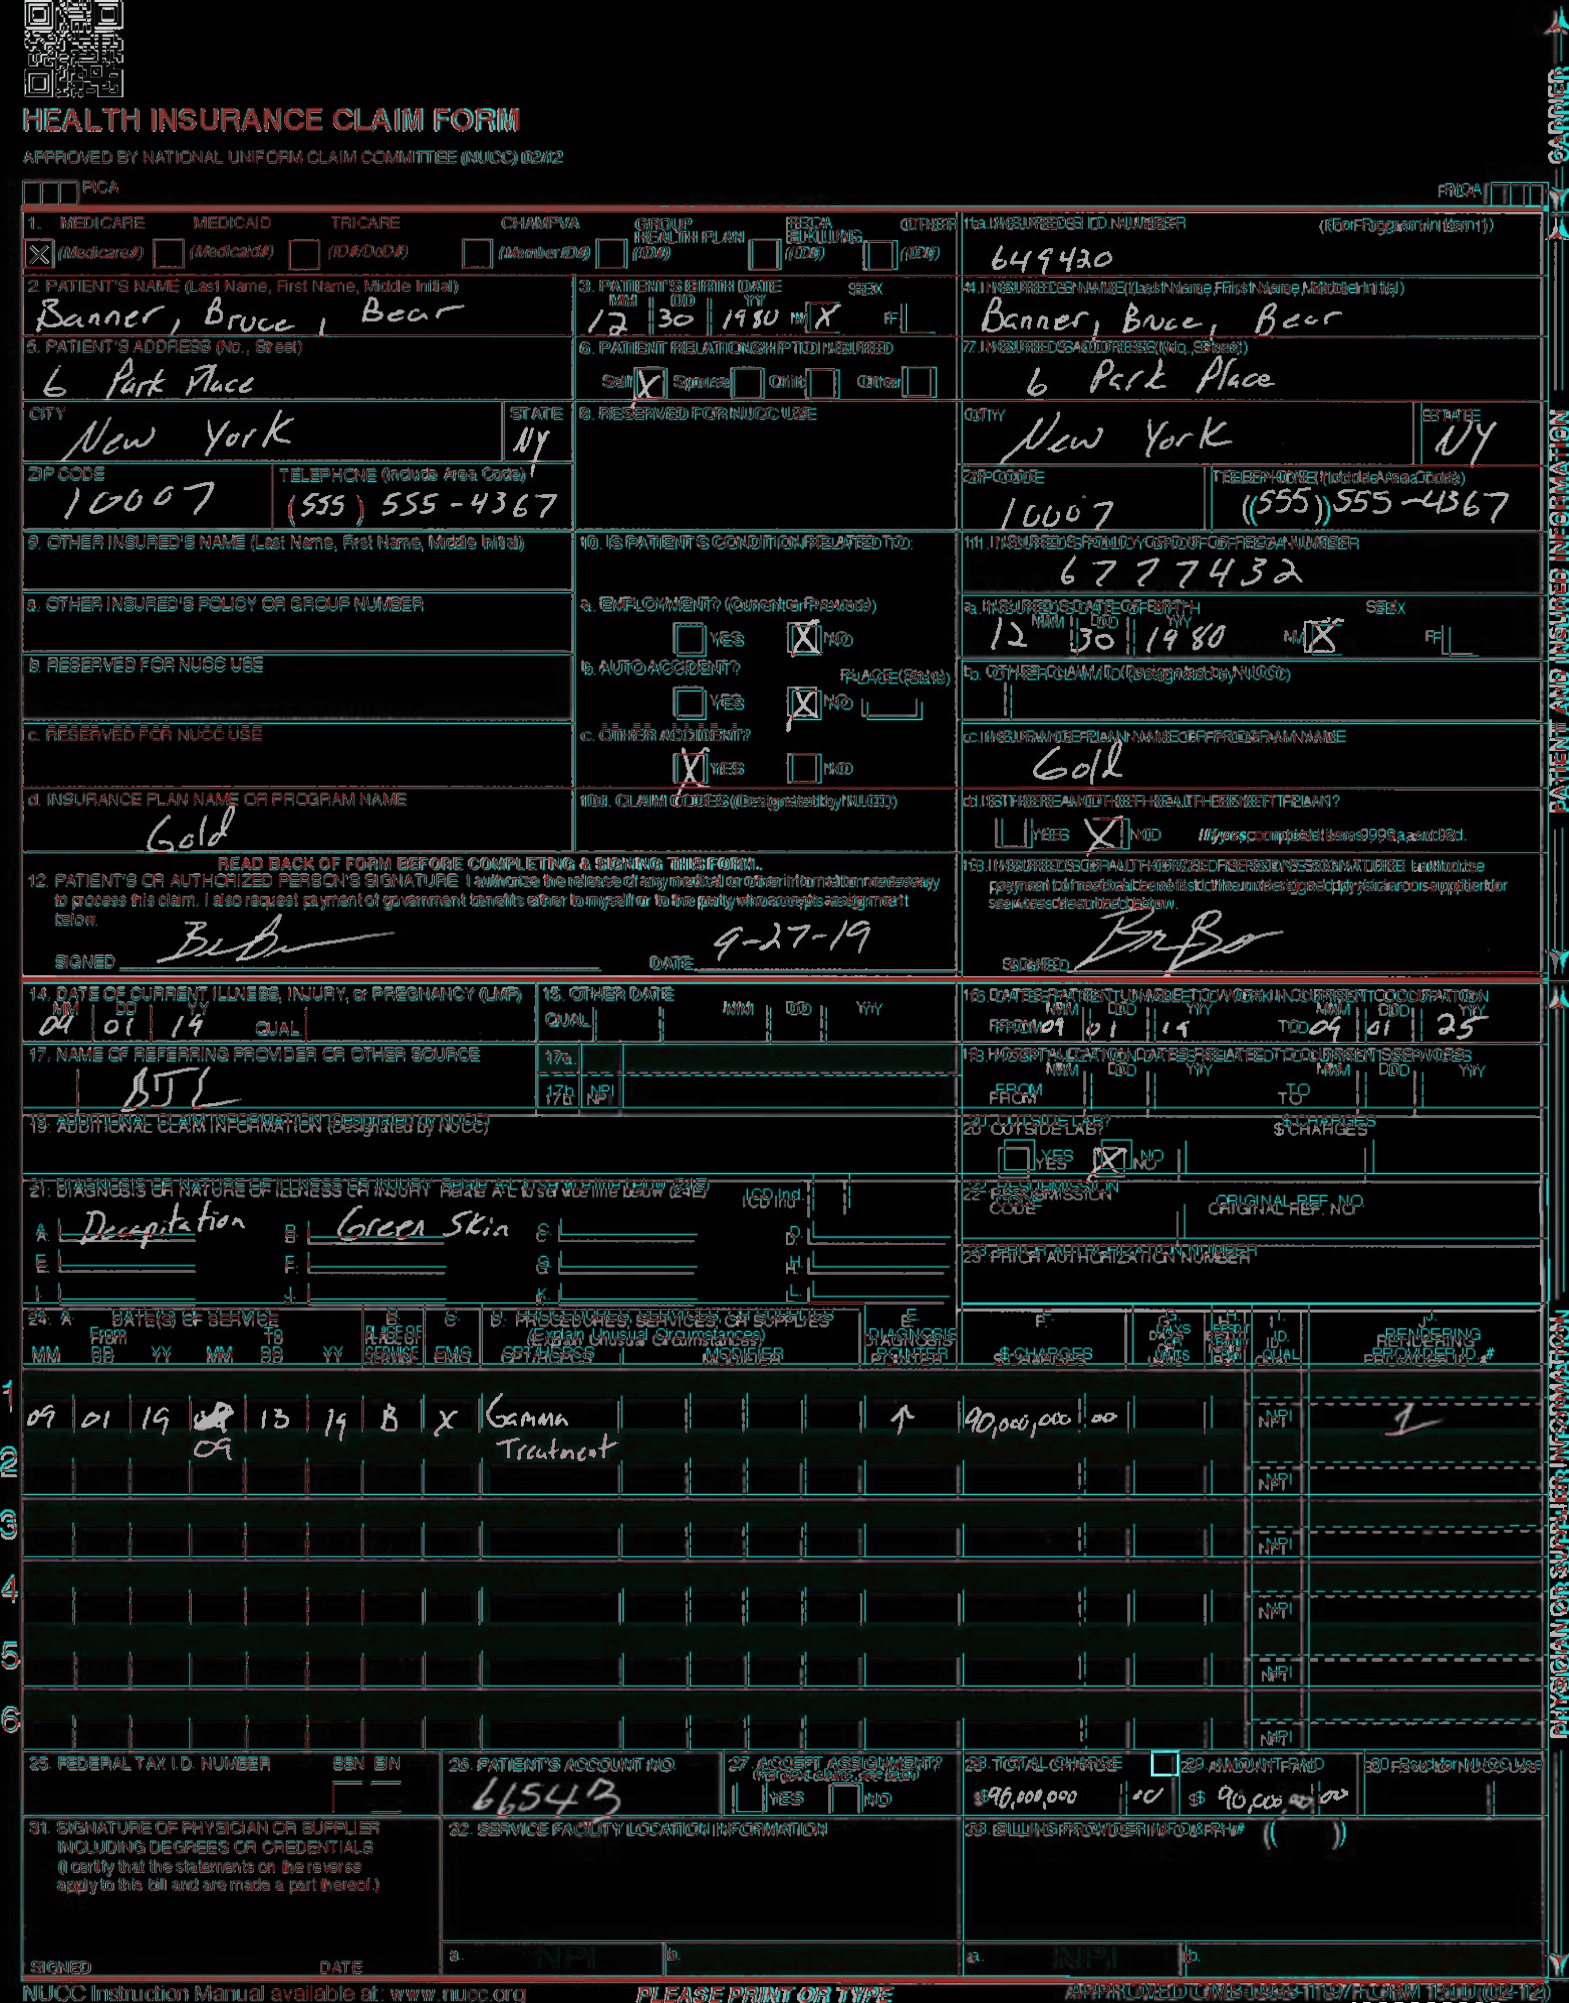 HEALTH INSURANCE CLAIM FORM
APPROVED BY NATIONAL UNIFORM CLAIM COMMITTEE (NUCC) 02/12
PICA
PICA
CARRIER
1. MEDICARE MEDICAID TRICARE CHAMPVA GROUP HEALTH PLAN FECA BLK LUNG OTHER
X (Medicare#) (Medicaid#) (ID#/DoD#) (Member ID#) (ID#) (ID#) (ID#)
1a. INSURED'S I.D. NUMBER (For Program in Item 1)
649420
2. PATIENT'S NAME (Last Name, First Name, Middle Initial)
Banner, Bruce, Bear
3. PATIENT'S BIRTH DATE SEX
MM DD YY
12 30 1980 M X F
4. INSURED'S NAME (Last Name, First Name, Middle Initial)
Banner, Bruce, Bear
5. PATIENT'S ADDRESS (No., Street)
6 Park Place
6. PATIENT RELATIONSHIP TO INSURED
Self X Spouse Child Other
7. INSURED'S ADDRESS (No., Street)
6 Park Place
CITY STATE
New York NY
8. RESERVED FOR NUCC USE
CITY STATE
New York NY
ZIP CODE TELEPHONE (Include Area Code)
10007 (555) 555-4367
ZIP CODE TELEPHONE (Include Area Code)
10007 (555) 555-4367
9. OTHER INSURED'S NAME (Last Name, First Name, Middle Initial)
10. IS PATIENT'S CONDITION RELATED TO:
11. INSURED'S POLICY GROUP OR FECA NUMBER
6777432
a. OTHER INSURED'S POLICY OR GROUP NUMBER
a. EMPLOYMENT? (Current or Previous)
YES X NO
a. INSURED'S DATE OF BIRTH SEX
MM DD YY
12 30 1980 M X F
b. RESERVED FOR NUCC USE
b. AUTO ACCIDENT? PLACE (State)
YES X NO
b. OTHER CLAIM ID (Designated by NUCC)
c. RESERVED FOR NUCC USE
c. OTHER ACCIDENT?
X YES NO
c. INSURANCE PLAN NAME OR PROGRAM NAME
Gold
d. INSURANCE PLAN NAME OR PROGRAM NAME
Gold
10d. CLAIM CODES (Designated by NUCC)
d. IS THERE ANOTHER HEALTH BENEFIT PLAN?
YES X NO If yes, complete items 9, 9a, and 9d.
PATIENT AND INSURED INFORMATION
READ BACK OF FORM BEFORE COMPLETING & SIGNING THIS FORM.
12. PATIENT'S OR AUTHORIZED PERSON'S SIGNATURE I authorize the release of any medical or other information necessary
to process this claim. I also request payment of government benefits either to myself or to the party who accepts assignment
below.
SIGNED DATE 9-27-19
13. INSURED'S OR AUTHORIZED PERSON'S SIGNATURE I authorize
payment of medical benefits to the undersigned physician or supplier for
services described below.
SIGNED
14. DATE OF CURRENT ILLNESS, INJURY, or PREGNANCY (LMP)
MM DD YY
09 01 19 QUAL.
15. OTHER DATE
QUAL. MM DD YY
16. DATES PATIENT UNABLE TO WORK IN CURRENT OCCUPATION
MM DD YY MM DD YY
FROM 09 01 19 TO 09 01 25
17. NAME OF REFERRING PROVIDER OR OTHER SOURCE
17a.
17b. NPI
18. HOSPITALIZATION DATES RELATED TO CURRENT SERVICES
MM DD YY MM DD YY
FROM TO
19. ADDITIONAL CLAIM INFORMATION (Designated by NUCC)
20. OUTSIDE LAB? $ CHARGES
YES X NO
21. DIAGNOSIS OR NATURE OF ILLNESS OR INJURY Relate A-L to service line below (24E) ICD Ind.
A. Decapitation B. Green Skin C. D.
E. F. G. H.
I. J. K. L.
22. RESUBMISSION CODE ORIGINAL REF. NO.
23. PRIOR AUTHORIZATION NUMBER
24. A. DATE(S) OF SERVICE B. C. D. PROCEDURES, SERVICES, OR SUPPLIES E. F. G. H. I. J.
From To PLACE OF (Explain Unusual Circumstances) DIAGNOSIS DAYS OR ID. RENDERING
MM DD YY MM DD YY SERVICE EMG CPT/HCPCS MODIFIER POINTER $ CHARGES UNITS QUAL. PROVIDER ID. #
1 09 01 19 13 19 B X Gamma ↑ 90,000,000 00 NPI 1
09 Treatment
2 NPI
3 NPI
4 NPI
5 NPI
6 NPI
PHYSICIAN OR SUPPLIER INFORMATION
25. FEDERAL TAX I.D. NUMBER SSN EIN
26. PATIENT'S ACCOUNT NO.
6654B
27. ACCEPT ASSIGNMENT?
YES NO
28. TOTAL CHARGE
$ 90,000,000 00
29. AMOUNT PAID
$ 90,000,000 00
30. Rsvd for NUCC Use
31. SIGNATURE OF PHYSICIAN OR SUPPLIER
INCLUDING DEGREES OR CREDENTIALS
(I certify that the statements on the reverse
apply to this bill and are made a part thereof.)
SIGNED DATE
32. SERVICE FACILITY LOCATION INFORMATION
a. NPI b.
33. BILLING PROVIDER INFO & PH # ( )
a. NPI b.
NUCC Instruction Manual available at: www.nucc.org
PLEASE PRINT OR TYPE
APPROVED OMB-0938-1197 FORM 1500 (02-12)